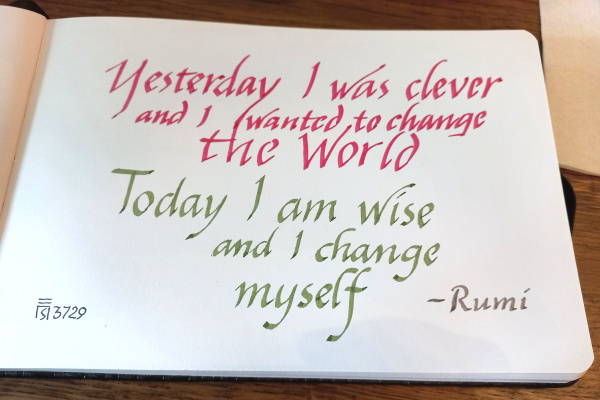 Yesterday I was clever
and I wanted to change
the World
Today I am wise
and I change
myself
-Rumi
3729